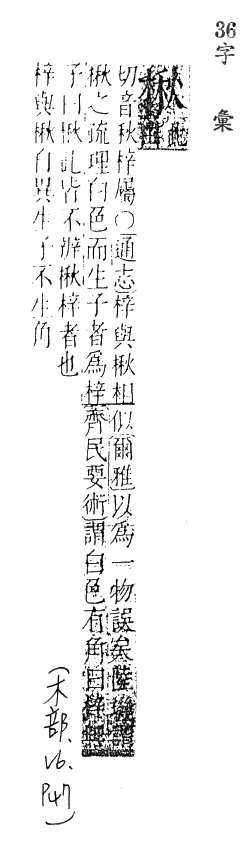 36字 彙
楸
切音秋梓屬○通志梓與楸相似爾雅以為一物誤矣陸璣謂
楸之疏理白色而生子者為梓齊民要術謂白色有角曰梓
子曰楸此皆不辨楸梓者也
梓與楸自異生子不生角
(木部.V6.P47)